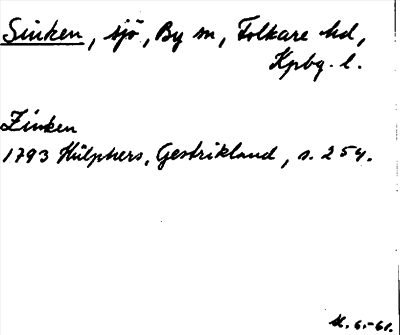 Sinken, sjö, By sn, Folkare hd,
Kpbg. l.
Zinken
1793 Hülphers, Gestrikland, s. 254.